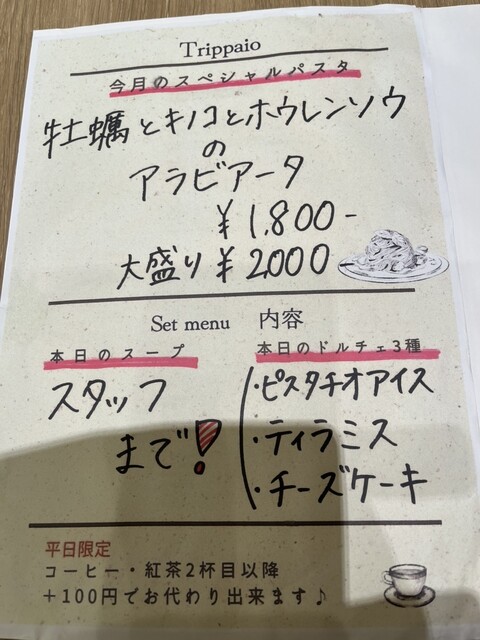 Trippaio
今月のスペシャルパスタ
牡蠣とキノコとホウレンソウ
の
アラビアータ
¥1,800-
大盛り¥2,000
Set menu 内容
本日のスープ
スタッフ
まで!
本日のドルチェ3種
・ピスタチオアイス
・ティラミス
・チーズケーキ
平日限定
コーヒー・紅茶2杯目以降
+100円でお代わり出来ます♪